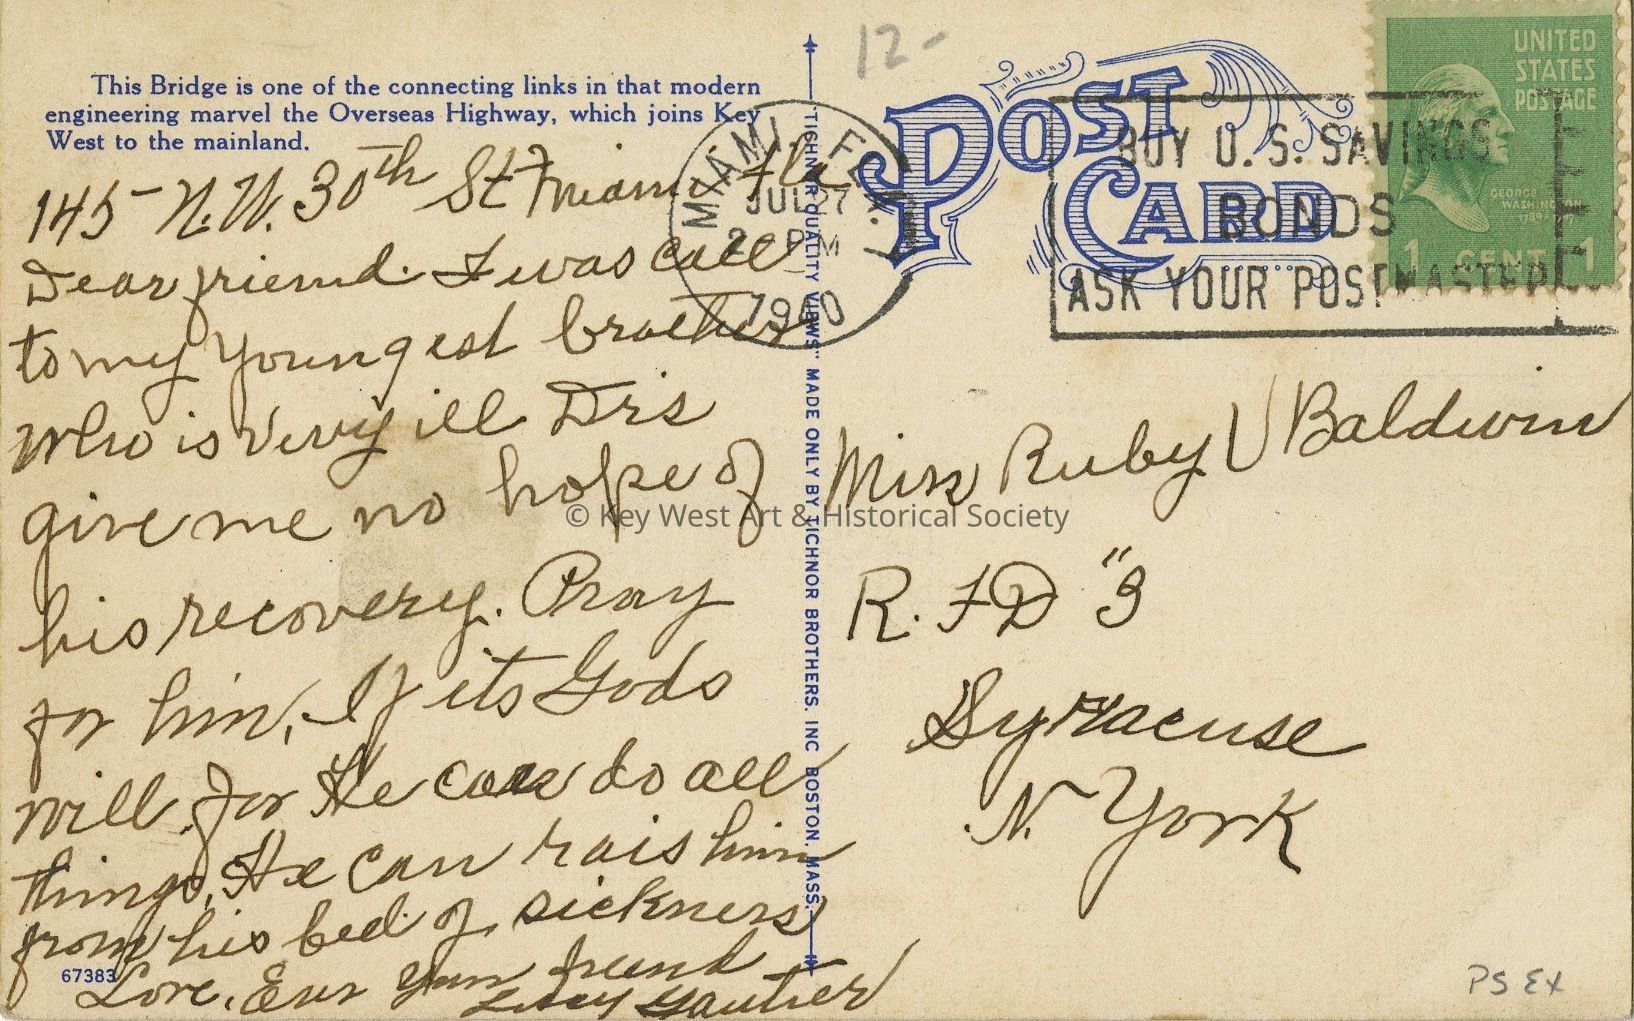 This Bridge is one of the connecting links in that modern
engineering marvel the Overseas Highway, which joins Key
West to the mainland.
145- N.W. 30th St Miami Fla
Dear friend. I was call
to my youngest brother
who is very ill Drs
give me no hope of
his recovery. Pray
for him, If its Gods
will. for He can do all
things, He can rais him
from his bed of sickness
Love, Ever your friend
Gautier
67383
"TICHNOR QUALITY VIEWS" MADE ONLY BY TICHNOR BROTHERS. INC BOSTON, MASS.
12-
POST CARD
MIAMI, FLA.
JUL 27
PM
1940
BUY U.S. SAVINGS
BONDS
ASK YOUR POSTMASTER
UNITED
STATES
POSTAGE
GEORGE
WASHINGTON
1 CENT 1
Miss Ruby V Baldwin
R.F.D "3
Syracuse
N. York
© Key West Art & Historical Society
PS EX